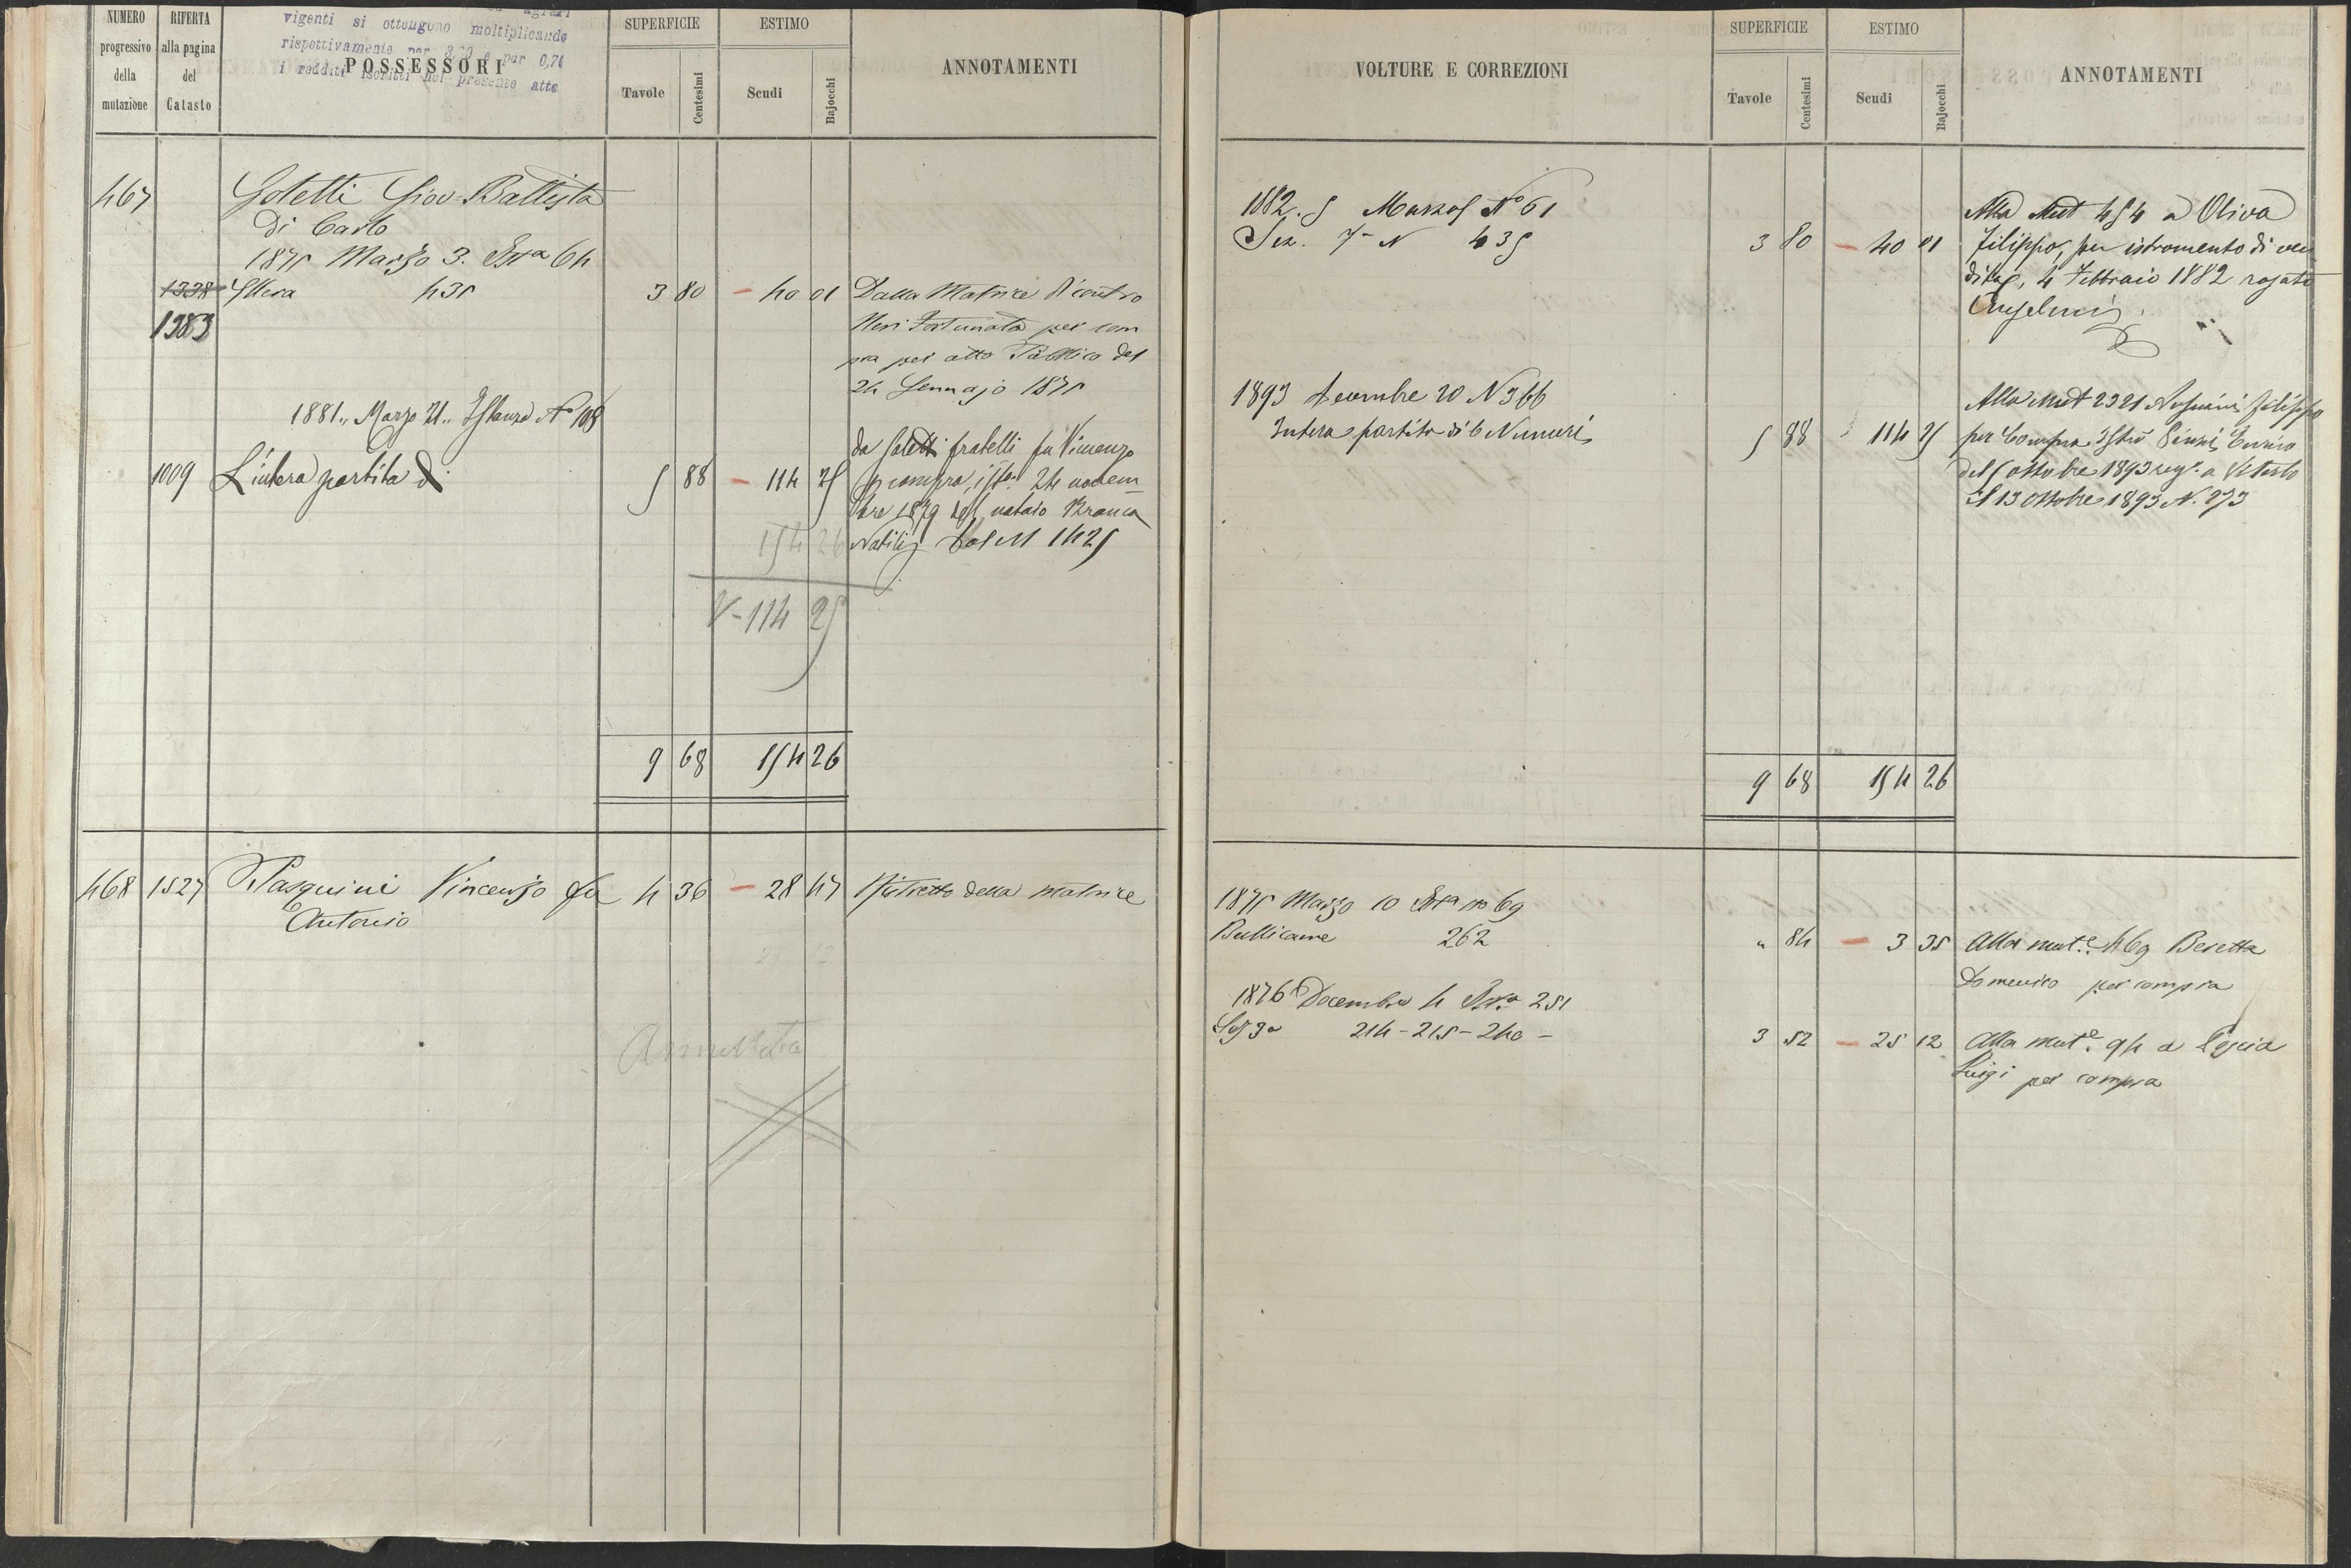 NUMERO progressivo della mutazione
RIFERTA alla pagina del Catasto
vigenti si ottengono moltiplicando
rispettivamente per e per 0,70
i redditi iscritti nel presente atto
POSSESSORI
SUPERFICIE
Tavole Centesimi
ESTIMO
Scudi Bajocchi
ANNOTAMENTI
467 Goletti Giov. Battista
di Carlo
1875 Marzo 3. Ista 64
1338 435 3 80 – 40 01 Dalla Matrice di contro
1983 Neri Fortunata per com
pra per atto Pubblico del
24 Gennajo 1875
1881,, Marzo 21,, Istanza No 108
da Goletti fratelli fu Vincenzo
1009 L'intera partita di 5 88 – 114 25 compra, isto 24 novem
bre 1879 notaio
154 26 Dal M 1425
V – 114 25
9 68 154 26
468 1527 Pasquini Vincenzo fu 4 36 – 28 47 Ristretto della Matrice
Antonio
Annullata
VOLTURE E CORREZIONI
SUPERFICIE
Tavole Centesimi
ESTIMO
Scudi Bajocchi
ANNOTAMENTI
1882. 5 Marzo No 61 Alla Mut 454 a Oliva
Sez. 7a N 435 3 80 – 40 01 Filippo, per istromento di ven
dita, 4 Febbraio 1882 rogato
1893 Decembre 20 N 366 Alla Mut 2321 Filippo
Intera partita di 6 Numeri 5 88 114 25 per Compra Enrico
del 6 ottobre 1893 reg. a Viterbo
il 13 Ottobre 1893 N. 273
9 68 154 26
1875 Marzo 10 Ista No 69
Bullicame 262 " 84 – 3 35 Alla mut.e 469 Beretta
Domenico per compra
1876 Decembre 4 Ista 251
3a 214 – 215 – 240 – 3 52 – 25 12 Alla mut.e 94 a Pescia
Luigi per compra